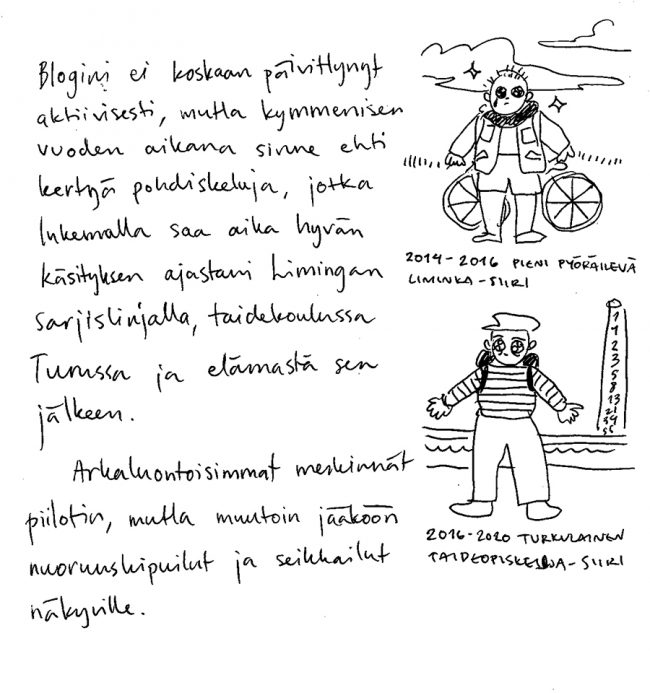 Blogini ei koskaan päivittynyt
aktiivisesti, mutta kymmenisen
vuoden aikana sinne ehti
kertyä pohdiskeluja, jotka
lukemalla saa aika hyvän
käsityksen ajastani Limingan
sarjislinjalla, taidekoulussa
Turussa ja elämästä sen
jälkeen.
Arkaluontoisimmat merkinnät
piilotin, mutta muutoin jääköön
nuoruuskipuilut ja seikkailut
näkyville.
2014-2016 PIENI PYÖRÄILEVÄ
LIMINKA-SIIRI
1
1
2
3
5
8
13
21
34
55
2016-2020 TURKULAINEN
TAIDEOPISKELIJA-SIIRI